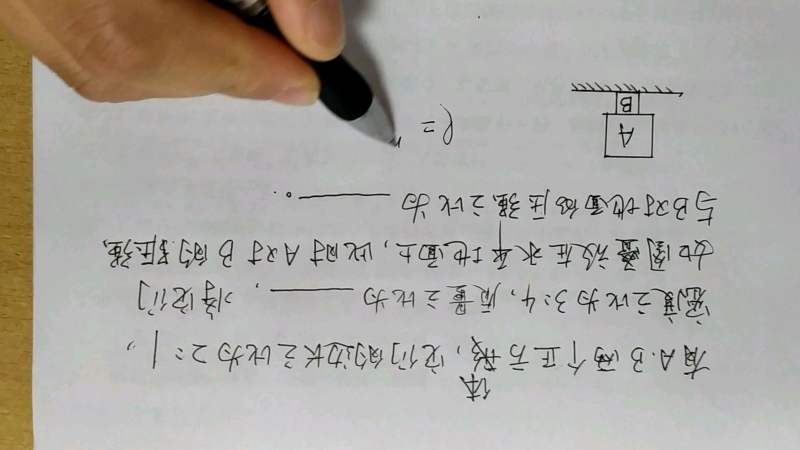 有A.B两个正方体，它们的边长之比为2:1，
密度之比为3:4，质量之比为______，将它们
如图叠放在水平地面上，此时A对B的压强
与B对地面的压强之比为______。
A
B
ρ=